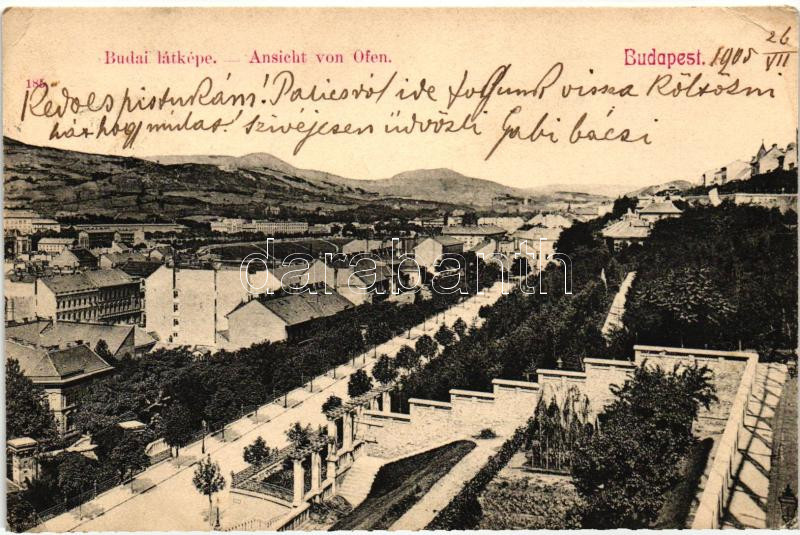 Budai látképe. — Ansicht von Ofen.
Budapest. 1905 26/VII
Kedves pistukám! Palicsról ide jottunk vissza Költözni
ház hogy mulat? Szivéjesen üdvözli Gabi bácsi
darabanth.com